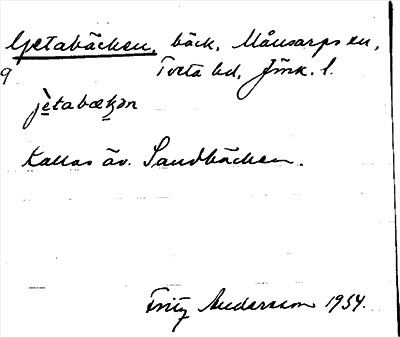 Getabäcken, bäck, Månsarps sn,
9 Tveta hd, Jönk. l.
jètabækən
Kallas äv. Sandbäcken.
Fritz Andersson 1954.